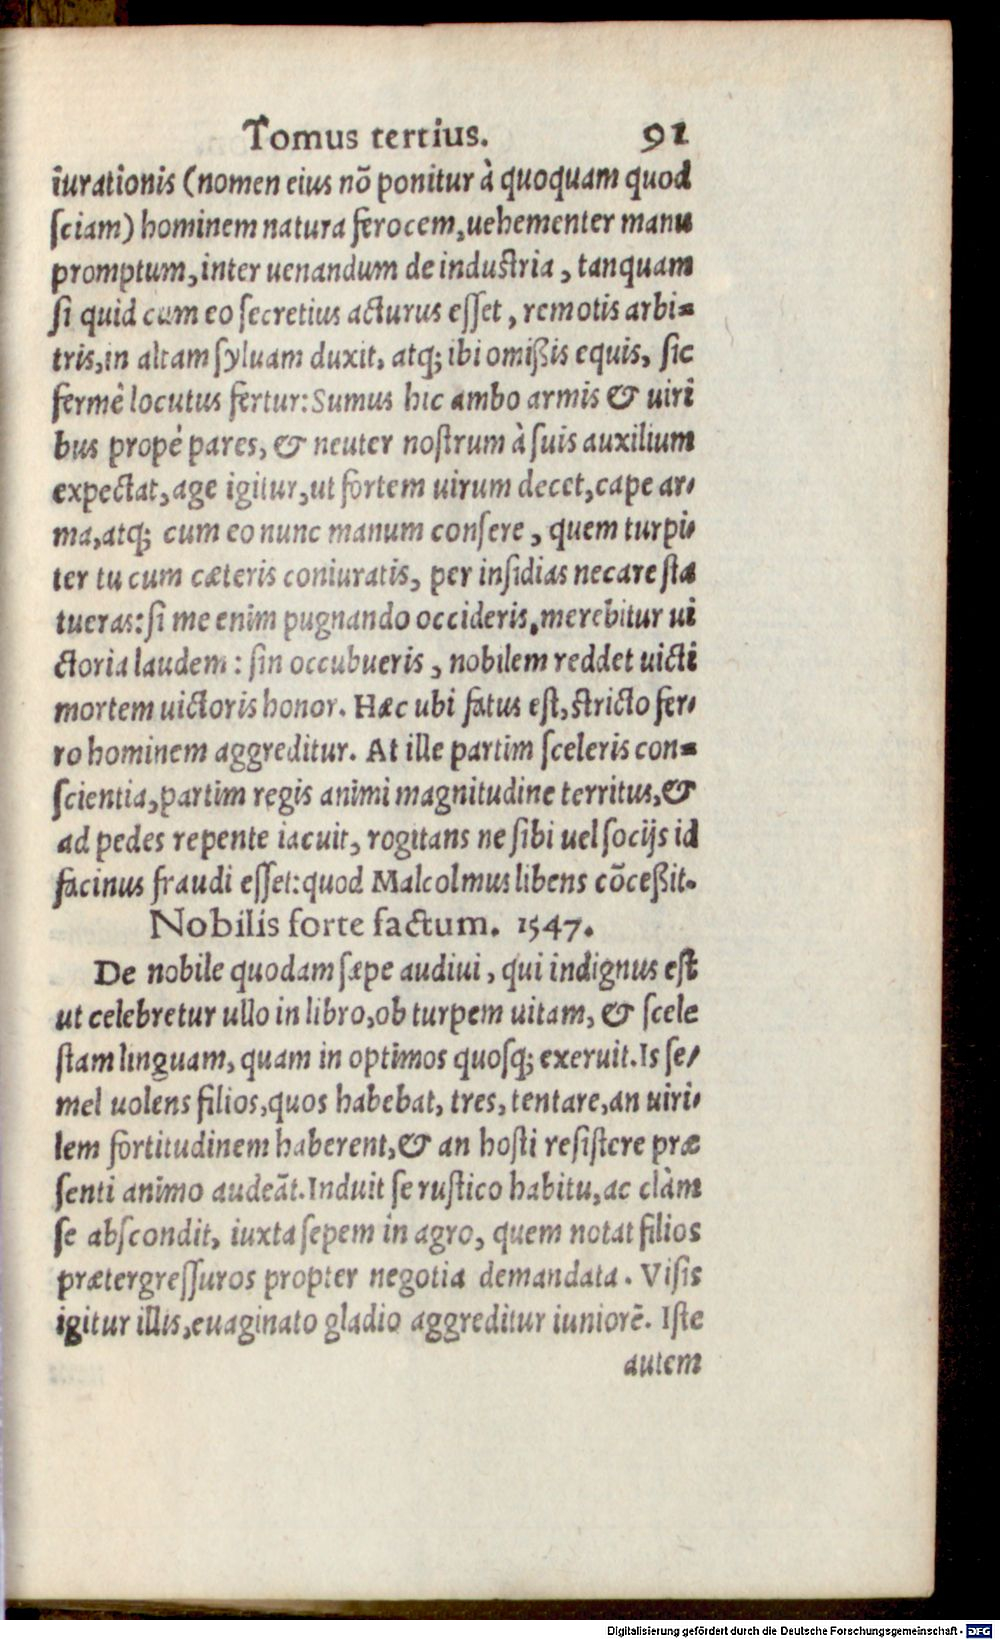 Tomus tertius. 91
iurationis (nomen eius nõ ponitur à quoquam quod
ſciam) hominem natura ferocem, uehementer manu
promptum, inter uenandum de induſtria, tanquam
ſi quid cum eo ſecretius acturus eſſet, remotis arbi=
tris, in altam ſyluam duxit, atq; ibi omißis equis, ſic
fermè locutus fertur: Sumus hic ambo armis & uiri
bus propè pares, & neuter noſtrum à ſuis auxilium
expectat, age igitur, ut fortem uirum decet, cape ar-
ma, atq; cum eo nunc manum conſere, quem turpi-
ter tu cum cæteris coniuratis, per inſidias necare ſta
tueras: ſi me enim pugnando occideris, merebitur ui
ctoria laudem: ſin occubueris, nobilem reddet uicti
mortem uictoris honor. Hæc ubi fatus eſt, ſtricto fer-
ro hominem aggreditur. At ille partim ſceleris con=
ſcientia, partim regis animi magnitudine territus, &
ad pedes repente iacuit, rogitans ne ſibi uel ſocijs id
facinus fraudi eſſet: quod Malcolmus libens cõceßit.
Nobilis forte factum. 1547.
De nobile quodam ſæpe audiui, qui indignus eſt
ut celebretur ullo in libro, ob turpem uitam, & ſcele
ſtam linguam, quam in optimos quoſq; exeruit. Is ſe-
mel uolens filios, quos habebat, tres, tentare, an uiri-
lem fortitudinem haberent, & an hoſti reſiſtere præ
ſenti animo audeãt. Induit ſe ruſtico habitu, ac clàm
ſe abſcondit, iuxta ſepem in agro, quem notat filios
prætergreſſuros propter negotia demandata. Viſis
igitur illis, euaginato gladio aggreditur iuniorẽ. Iſte
autem
Digitalisierung gefördert durch die Deutsche Forschungsgemeinschaft - DFG